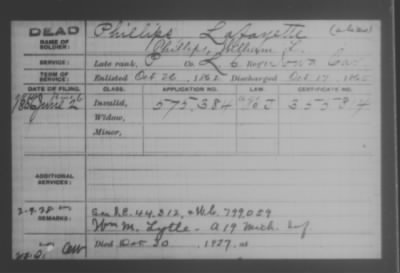 DEAD
NAME OF SOLDIER:
Phillips Lafayette (alias)
Phillips, William L.
SERVICE:
Late rank, P Co. L, 6 Reg't Iowa Cav.
TERM OF SERVICE:
Enlisted Oct 26, 1862 Discharged Oct. 17, 1865
DATE OF FILING.
CLASS.
APPLICATION NO.
LAW.
CERTIFICATE NO.
June 2
Invalid,
575.384
355584
Widow,
Minor,
ADDITIONAL SERVICES:
REMARKS:
2-9-28
See R.C. 44.312, + 799.059
Wm M. Lytle - A 19 Mich. Inf
Died Dec 20, 1927, at